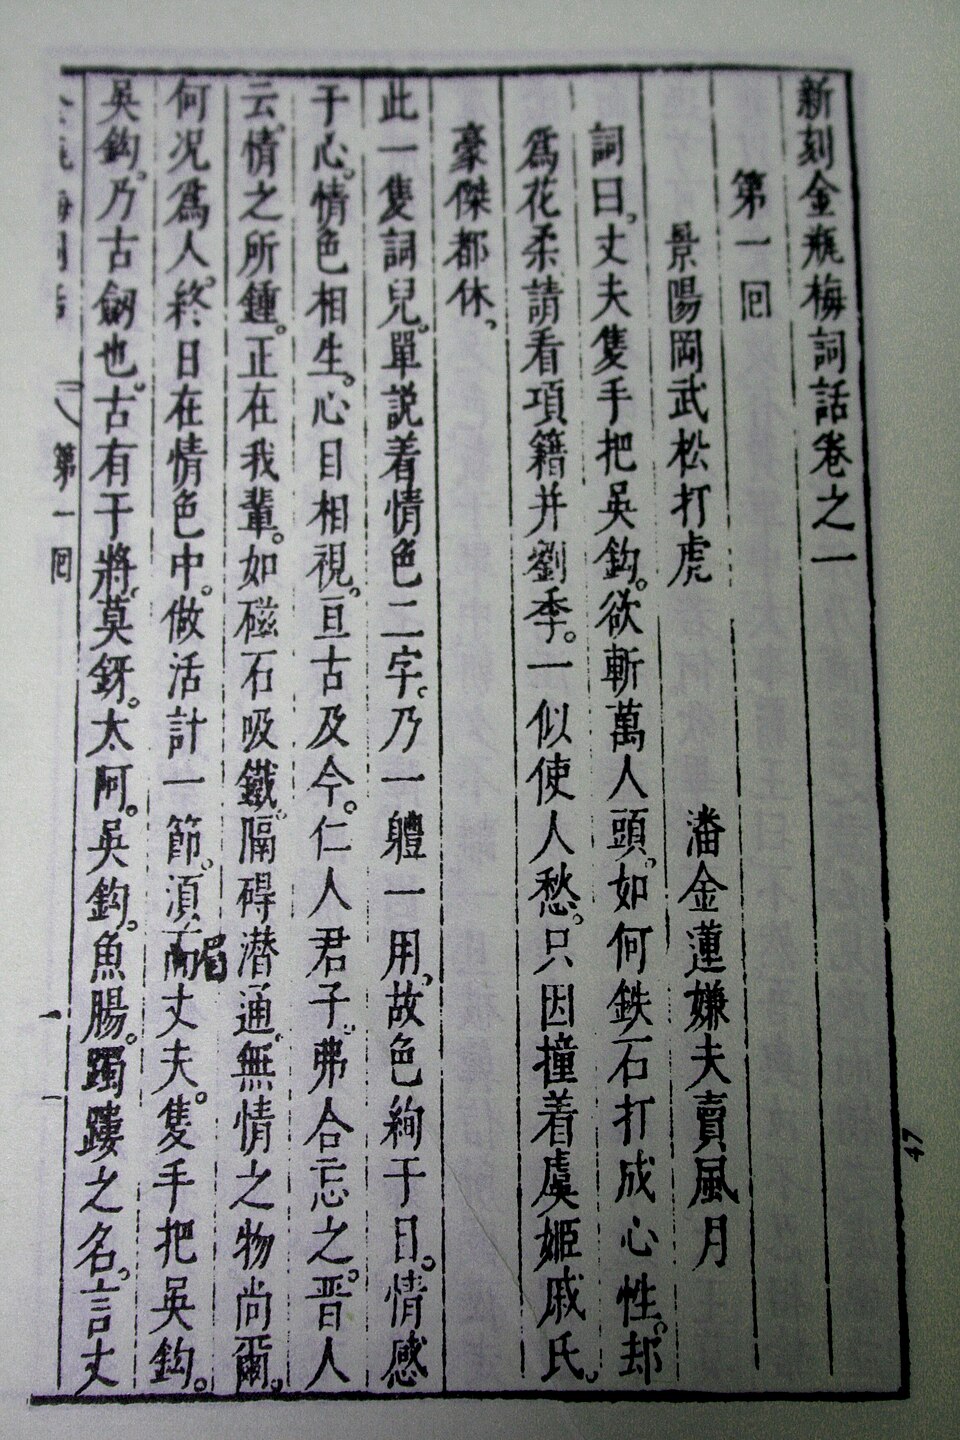 新刻金瓶梅詞話卷之一
第一囘
景陽岡武松打虎 潘金蓮嫌夫賣風月
詞曰丈夫隻手把吳鈎。欲斬萬人頭。如何鉄石打成心性。却
爲花柔請看項籍并劉季。一似使人愁。只因撞着虞姬戚氏。
豪傑都休。
此一隻詞兒。單説着情色二字。乃一體一用。故色絢于目。情感
于心。情色相生。心目相視。亘古及今。仁人君子。弗合忘之。晋人
云。情之所鍾。正在我輩。如磁石吸鐵。隔碍潜通。無情之物尚爾。
何况爲人。終日在情色中。做活計一節。須而丈夫。隻手把吳鈎。
吳鈎。乃古劒也。古有干將。莫釾。太阿。吳鈎。魚腸。躅鏤之名。言丈
第一囘
47